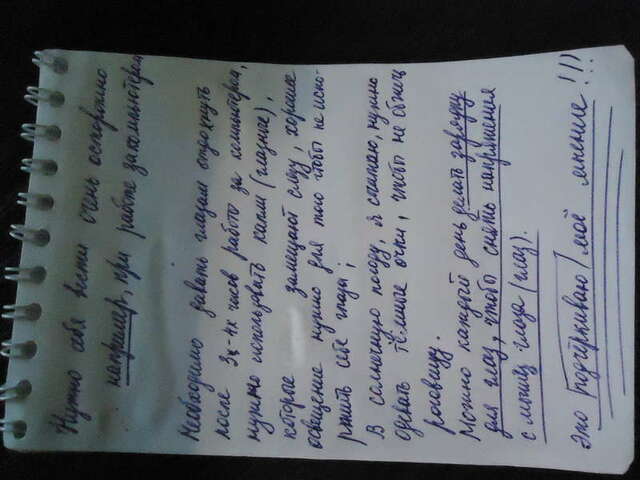 Нужно себя вести очень осторожно
например, при работе за компьютером
Необходимо давать глазам отдохнуть
после 3х-4х часов работы за компьютером,
нужно использовать капли (глазные),
которые замещают слезу, хорошее
освещение нужно для того чтобы не испо-
ртить себе глаза;
В солнечную погоду, я считаю, нужно
одевать тёмные очки, чтобы не обжечь
роговицу.
Можно каждый день делать зарядку
для глаз, чтобы снять напряжения
с мышц глаза (глаз).
Это (подчёркиваю) моё мнение!!!